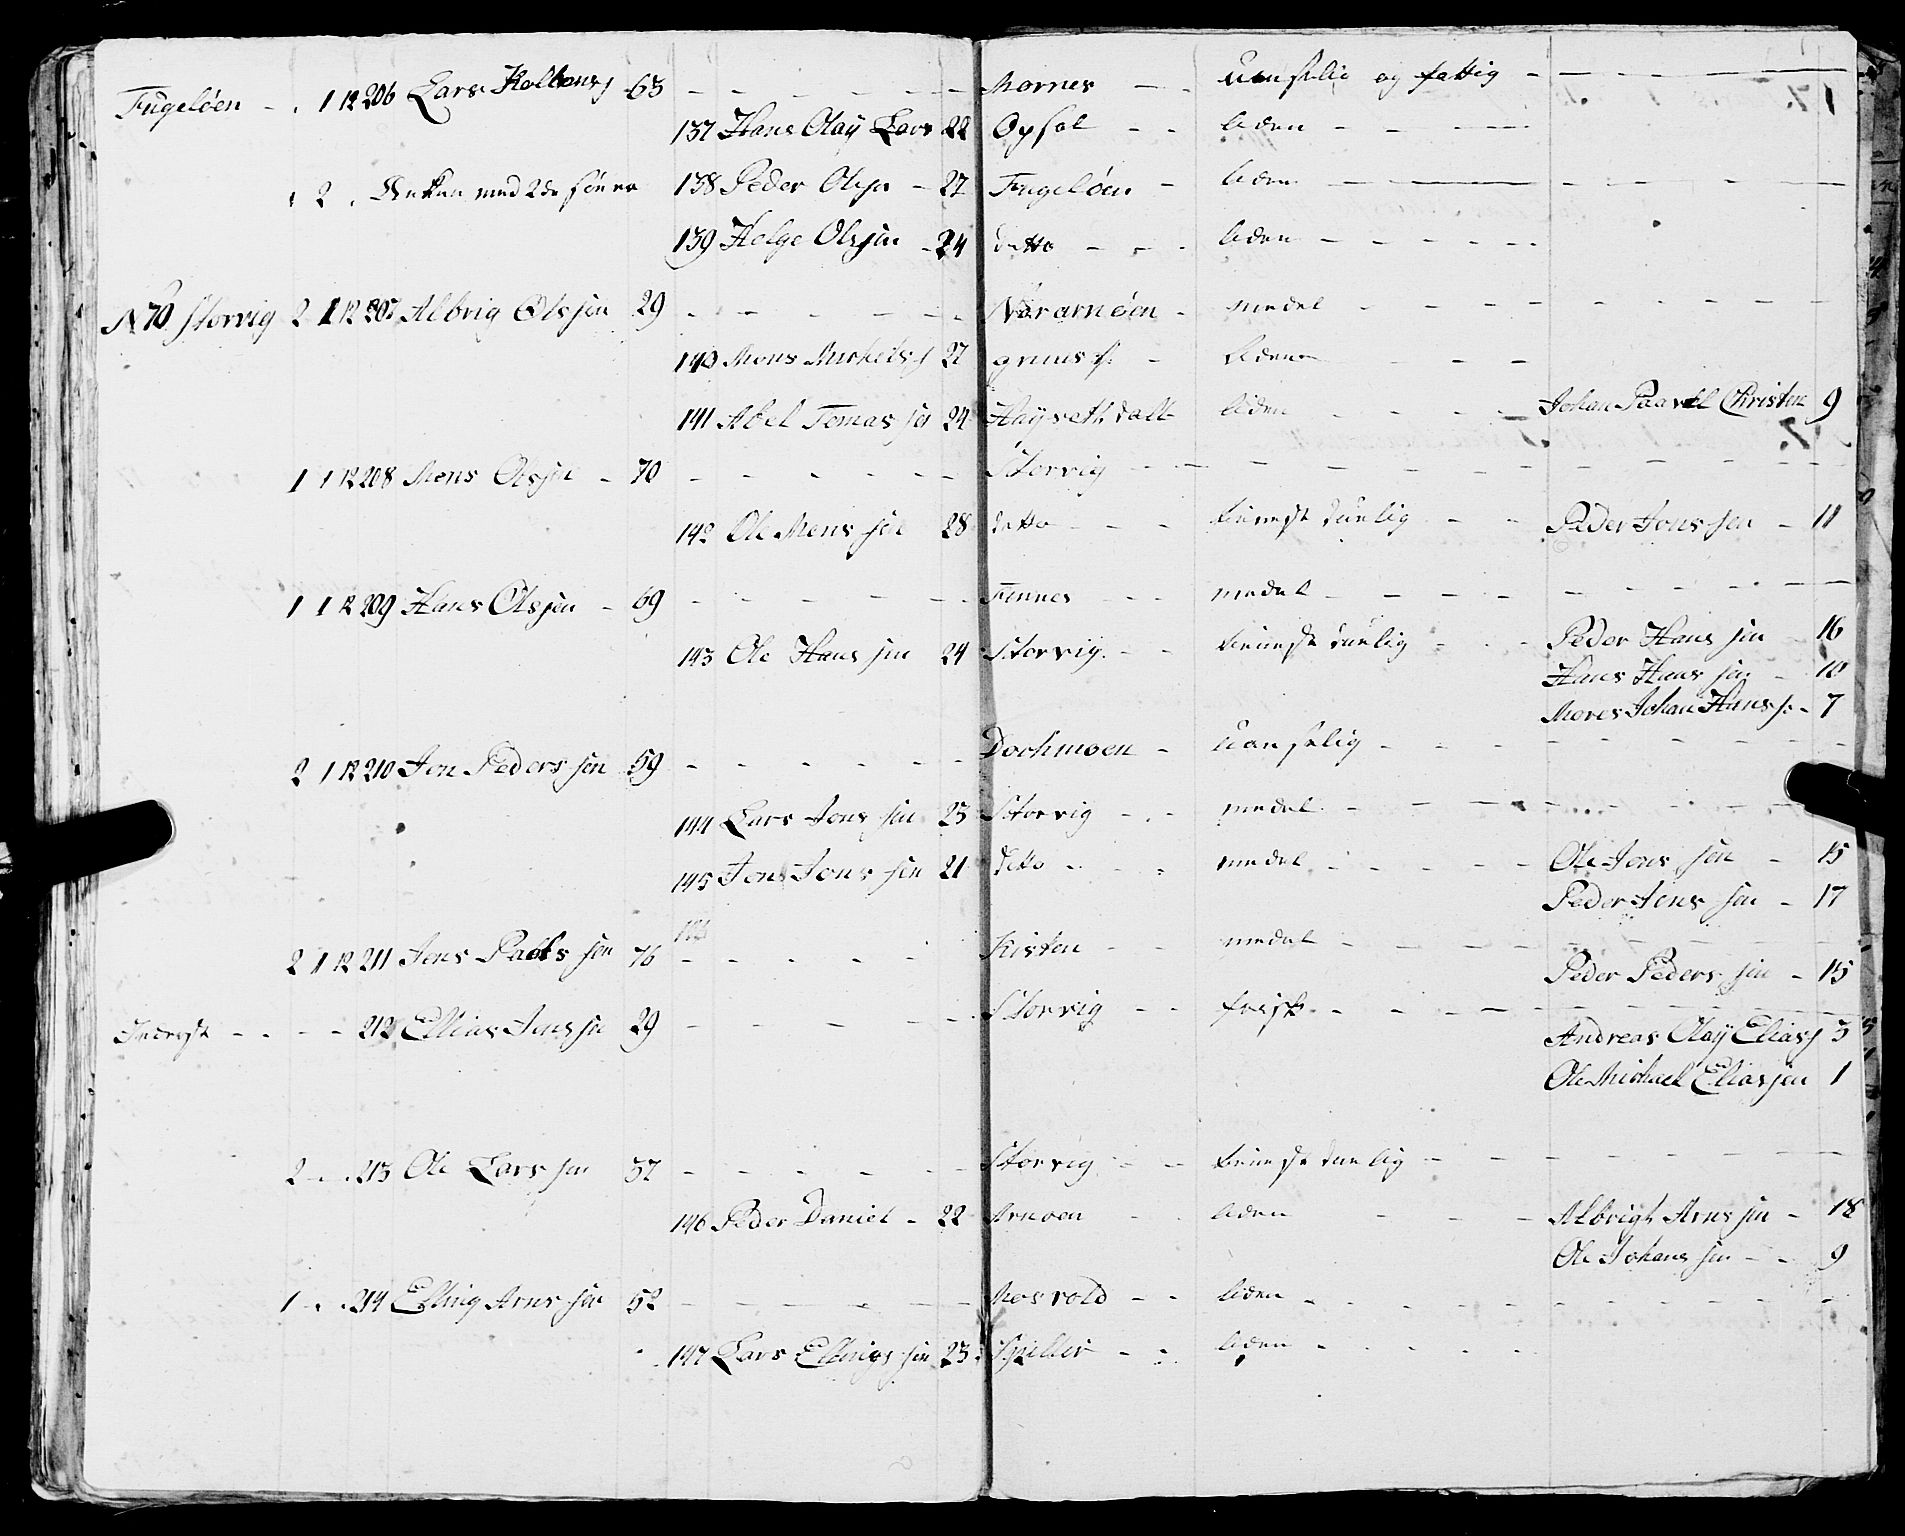 Fugelöen - . 1 12 206 Lars Kolbens j 63 - - - - - Mornes - - uanselig og fattig - - - -
137 Hans Olaÿ Lars 22 Opsal - - liden - - - -
2 . Enken med 2de sönner 138 Peder Olsen - 27 Fugelöen - liden - - - -
139 Helge Olsjen - 24 ditto - - - liden - - - -
N 70 Storvig 2 1 12 207 Albrig Olsjen 29 - - - - - - medel - - - -
140 Mons Mickels j 27 - liden - - -
141 Abel Tomas sen 24 liden - - - - Johan Paavel Christen 9
1 1 12 208 Mons Olsjen - 70 - - - - - Storvig - - - - - -
142 Ole Mons sen 28 ditto - - - - - Peder Jons sen - 11
1 1 12 209 Hans Olsjen - 69 - - - - - Finnes - - - medel - - - -
143 Ole Hans sen 24 Storvig - - - - - Peder Hans sen - 16
Hans Hans sen - 10
Mores Johan Hans s. - 7
2 1 12 210 Jon Peders sen 59 - - - - - Dochmoen - uanselig - - - -
144 Lars Jons sen 23 Storvig - - - medel - - - -
145 Jon Jons sen 21 ditto - - - medel - - - - Ole Jons sen - 15
Peder Jons sen - 17
2 1 12 211 Jens Pauls sen 76 - - - - - Kisten - - medel - - - -
Peder Peders sen - 15
Inderst - - - - 212 Ellias Jens sen 29 - - - - - Storvig - - frisk - - - -
Andreas Olaÿ Elias j 3
Ole Michael Eliasjen 1
2 - . . 213 Ole Lars sen 37 - - - - - Storvig - - - - - -
146 Peder Daniel - 22 Arnoen - - liden - - - Albrigt Arns sen - 18
Ole Johans sen - - 9
1 - . . 214 Elling Arns sen 52 - - - - - Mosvold - - liden - - - -
147 Lars Ellings sen 23 - - liden - - - -